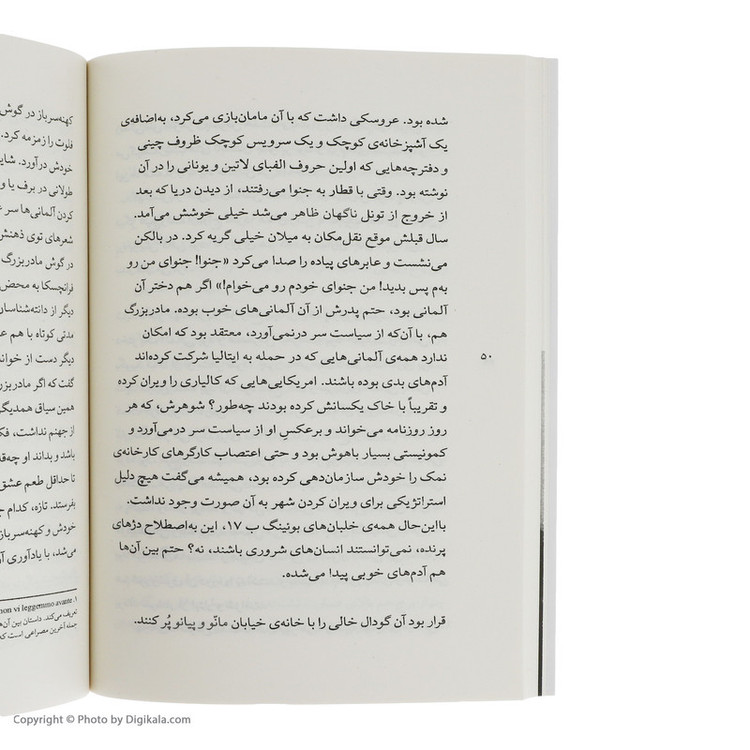 شده بود. عروسکی داشت که با آن مامان‌بازی می‌کرد، به‌اضافه‌ی
یک آشپزخانه‌ی کوچک و یک سرویس کوچک ظروف چینی
و دفترچه‌هایی که اولین حروف الفبای لاتین و یونانی را در آن
نوشته بود. وقتی با قطار به جنوا می‌رفتند، از دیدن دریا که بعد
از خروج از تونل ناگهان ظاهر می‌شد خیلی خوشش می‌آمد.
سال قبلش موقع نقل‌مکان به میلان خیلی گریه کرد. در بالکن
می‌نشست و عابرهای پیاده را صدا می‌کرد «جنوا! جنوای من رو
به‌م پس بدید! من جنوای خودم رو می‌خوام!» اگر هم دختر آن
آلمانی بود، حتم پدرش از آن آلمانی‌های خوب بوده. مادربزرگ
هم، با آن‌که از سیاست سر درنمی‌آورد، معتقد بود که امکان
ندارد همه‌ی آلمانی‌هایی که در حمله به ایتالیا شرکت کرده‌اند
آدم‌های بدی بوده باشند. امریکایی‌هایی که کالیاری را ویران کرده
و تقریباً با خاک یکسانش کرده بودند چه‌طور؟ شوهرش، که هر
روز روزنامه می‌خواند و برعکسِ او از سیاست سر درمی‌آورد و
کمونیستی بسیار باهوش بود و حتی اعتصاب کارگرهای کارخانه‌ی
نمک را خودش سازمان‌دهی کرده بود، همیشه می‌گفت هیچ دلیل
استراتژیکی برای ویران کردن شهر به آن صورت وجود نداشت.
بااین‌حال همه‌ی خلبان‌های بوئینگ ب ۱۷، این به‌اصطلاح دژهای
پرنده، نمی‌توانستند انسان‌های شروری باشند، نه؟ حتم بین آن‌ها
هم آدم‌های خوبی پیدا می‌شده.
قرار بود آن گودال خالی را با خانه‌ی خیابان مانّو و پیانو پُر کنند.
۵۰
کهنه‌سرباز در گوش
فلوت را زمزمه کرد.
خودش درآورد. شای
طولانی در برف یا و
کردن آلمانی‌ها سر
شعرهای توی ذهنش
در گوش مادربزرگ
فرانچسکا به محض
دیگر از دانته‌شناسان
مدتی کوتاه با هم ع
دیگر دست از خوان
گفت که اگر مادربزر
همین سیاق همدیگر
از جهنم نداشت، فک
باشد و بداند او چه‌ق
تا حداقل طعم عشق
بفرستد. تازه، کدام ج
خودش و کهنه‌سرباز
می‌شد، با یادآوری آ
۱. non vi leggemmo avante
تعریف می‌کند. داستان بین آن‌ه
جمله آخرین مصراعی است که
Copyright © Photo by Digikala.com